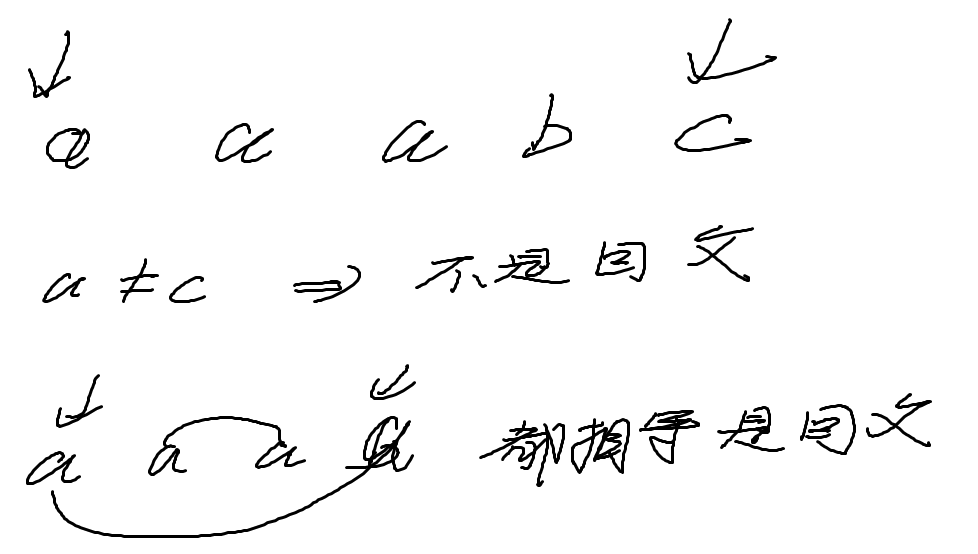 a a a b c
a ≠ c ⇒ 不是回文
a a a a 都相等是回文